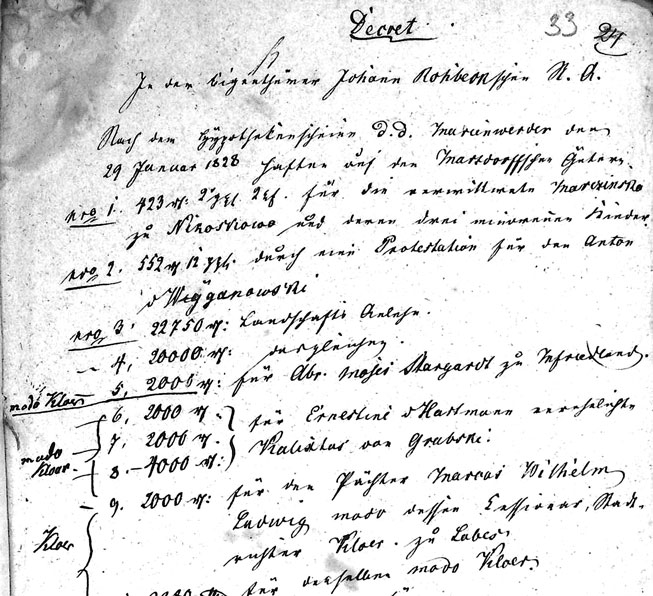 Decret
33 24
In der Eigenthümer Johann Rohbeckschen S. A.
Nach dem Hypothekenscheine d. d. Marienwerder den
29 Januar 1828 haften auf den Marsdorffschen Gütern.
nro 1. 423 rt: 2 sgl. 2 pf. für die verwittwete Marczinska
zu Nikoskowo und deren drei minorennen Kinder
nro 2. 552 rt 12 sgl. durch eine Protestation für den Anton
v Wyganowski
nro 3. 22750 rt: Landschafts Anlehn.
— 4, 20000 rt: desgleichen.
modo Kloer 5, 2000 rt: für Abr. Moses Stargardt zu Mfriedland.
6, 2000 rt. für Ernestine v Hartmann verehelichte
modo Kloer. 7, 2000 rt. Kalixtus von Grabski:
8. — 4000 rt:
— 9. 2000 rt: für den Pächter Marcus Wilhelm
Ludwig modo dessen Cessionar, Stadt-
Kloer richter Kloer. zu Labes
für denselben modo Kloer.